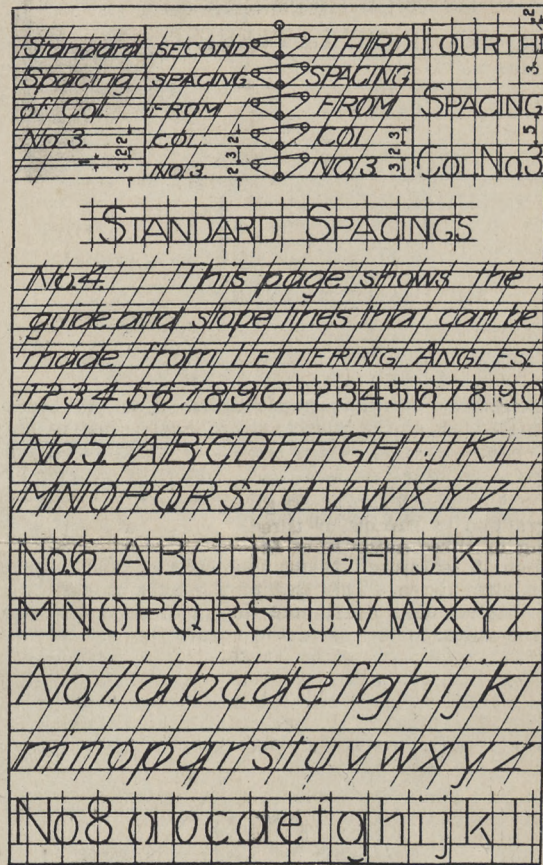 Standard SECOND THIRD FOURTH
Spacing SPACING SPACING
of Col. FROM FROM SPACING
No 3. COL. COL.
NO.3. NO.3. COL.NO.3
2
3
5
1 3 2 2 2 3 2 3 2 3
STANDARD SPACINGS
No.4. This page shows the
guide and slope lines that can be
made from LETTERING ANGLES
1234567890 1234567890
No.5. ABCDEFGHIJKL
MNOPQRSTUVWXYZ
No.6 ABCDEFGHIJKL
MNOPQRSTUVWXYZ
No.7. abcdefghijkl
mnopqrstuvwxyz
No.8 abcdefghijkl